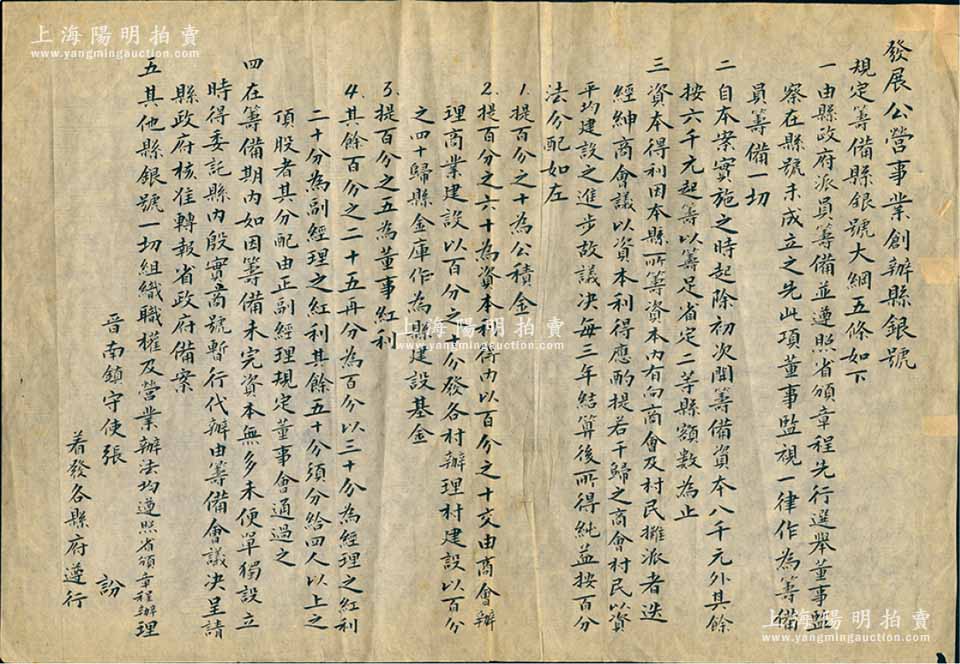 發展公營事業創辦縣銀號
規定籌備縣銀號大綱五條如下
一由縣政府派員籌備並遵照省頒章程先行選舉董事監
察在縣號未成立之先此項董事監視一律作為籌備
員籌備一切
二自本案實施之時起除初次開籌備資本八千元外其餘
按六千元起籌以籌足省定二等縣額數為止
三資本得利因本縣所籌資本內有向商會及村民攤派者迭
經紳商會議以資本利得應酌提若干歸之商會村民以資
平均建設之進步故議决每三年結算後所得純益按百分
法分配如左
1.提百分之十為公積金
2.提百分之六十為資本利得內以百分之十交由商會辦
理商業建設以百分之五十分發各村辦理村建設以百分
之四十歸縣金庫作為縣建設基金
3.提百分之五為董事紅利
4.其餘百分之二十五再分為百分以三十分為經理之紅利
二十分為副經理之紅利其餘五十分須分給四人以上之
頂股者其分配由正副經理規定董事會通過之
四在籌備期內如因籌備未完資本無多未便單獨設立
時得委託縣內殷實商號暫行代辦由籌備會議决呈請
縣政府核准轉報省政府備案
五其他縣銀號一切組織職權及營業辦法均遵照省頒章程辦理
晉南鎮守使張 訜
着發各縣府遵行
上海陽明拍賣
www.yangmingauction.com
上海陽明拍賣
www.yangmingauction.com
上海陽明拍賣
www.yangmingauction.com